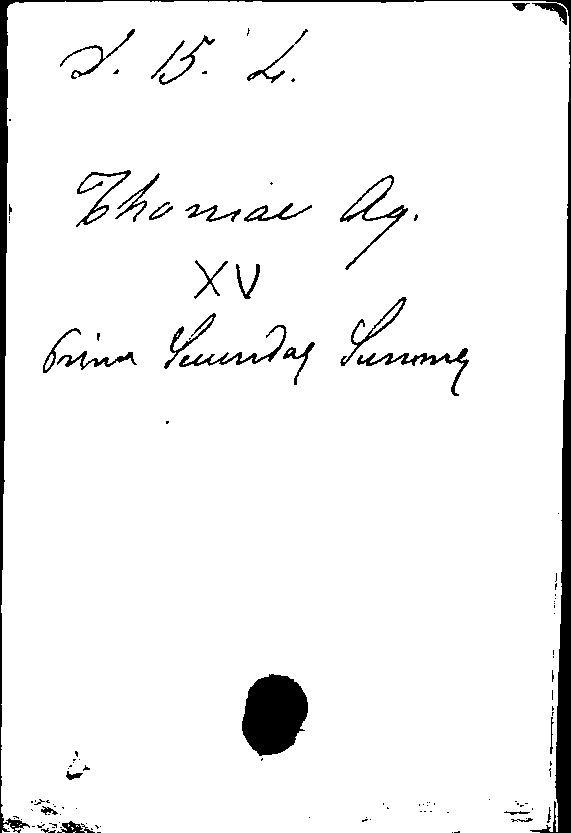 S. 15. L.
Thomae Aq.
XV
Prima Secundae Summe